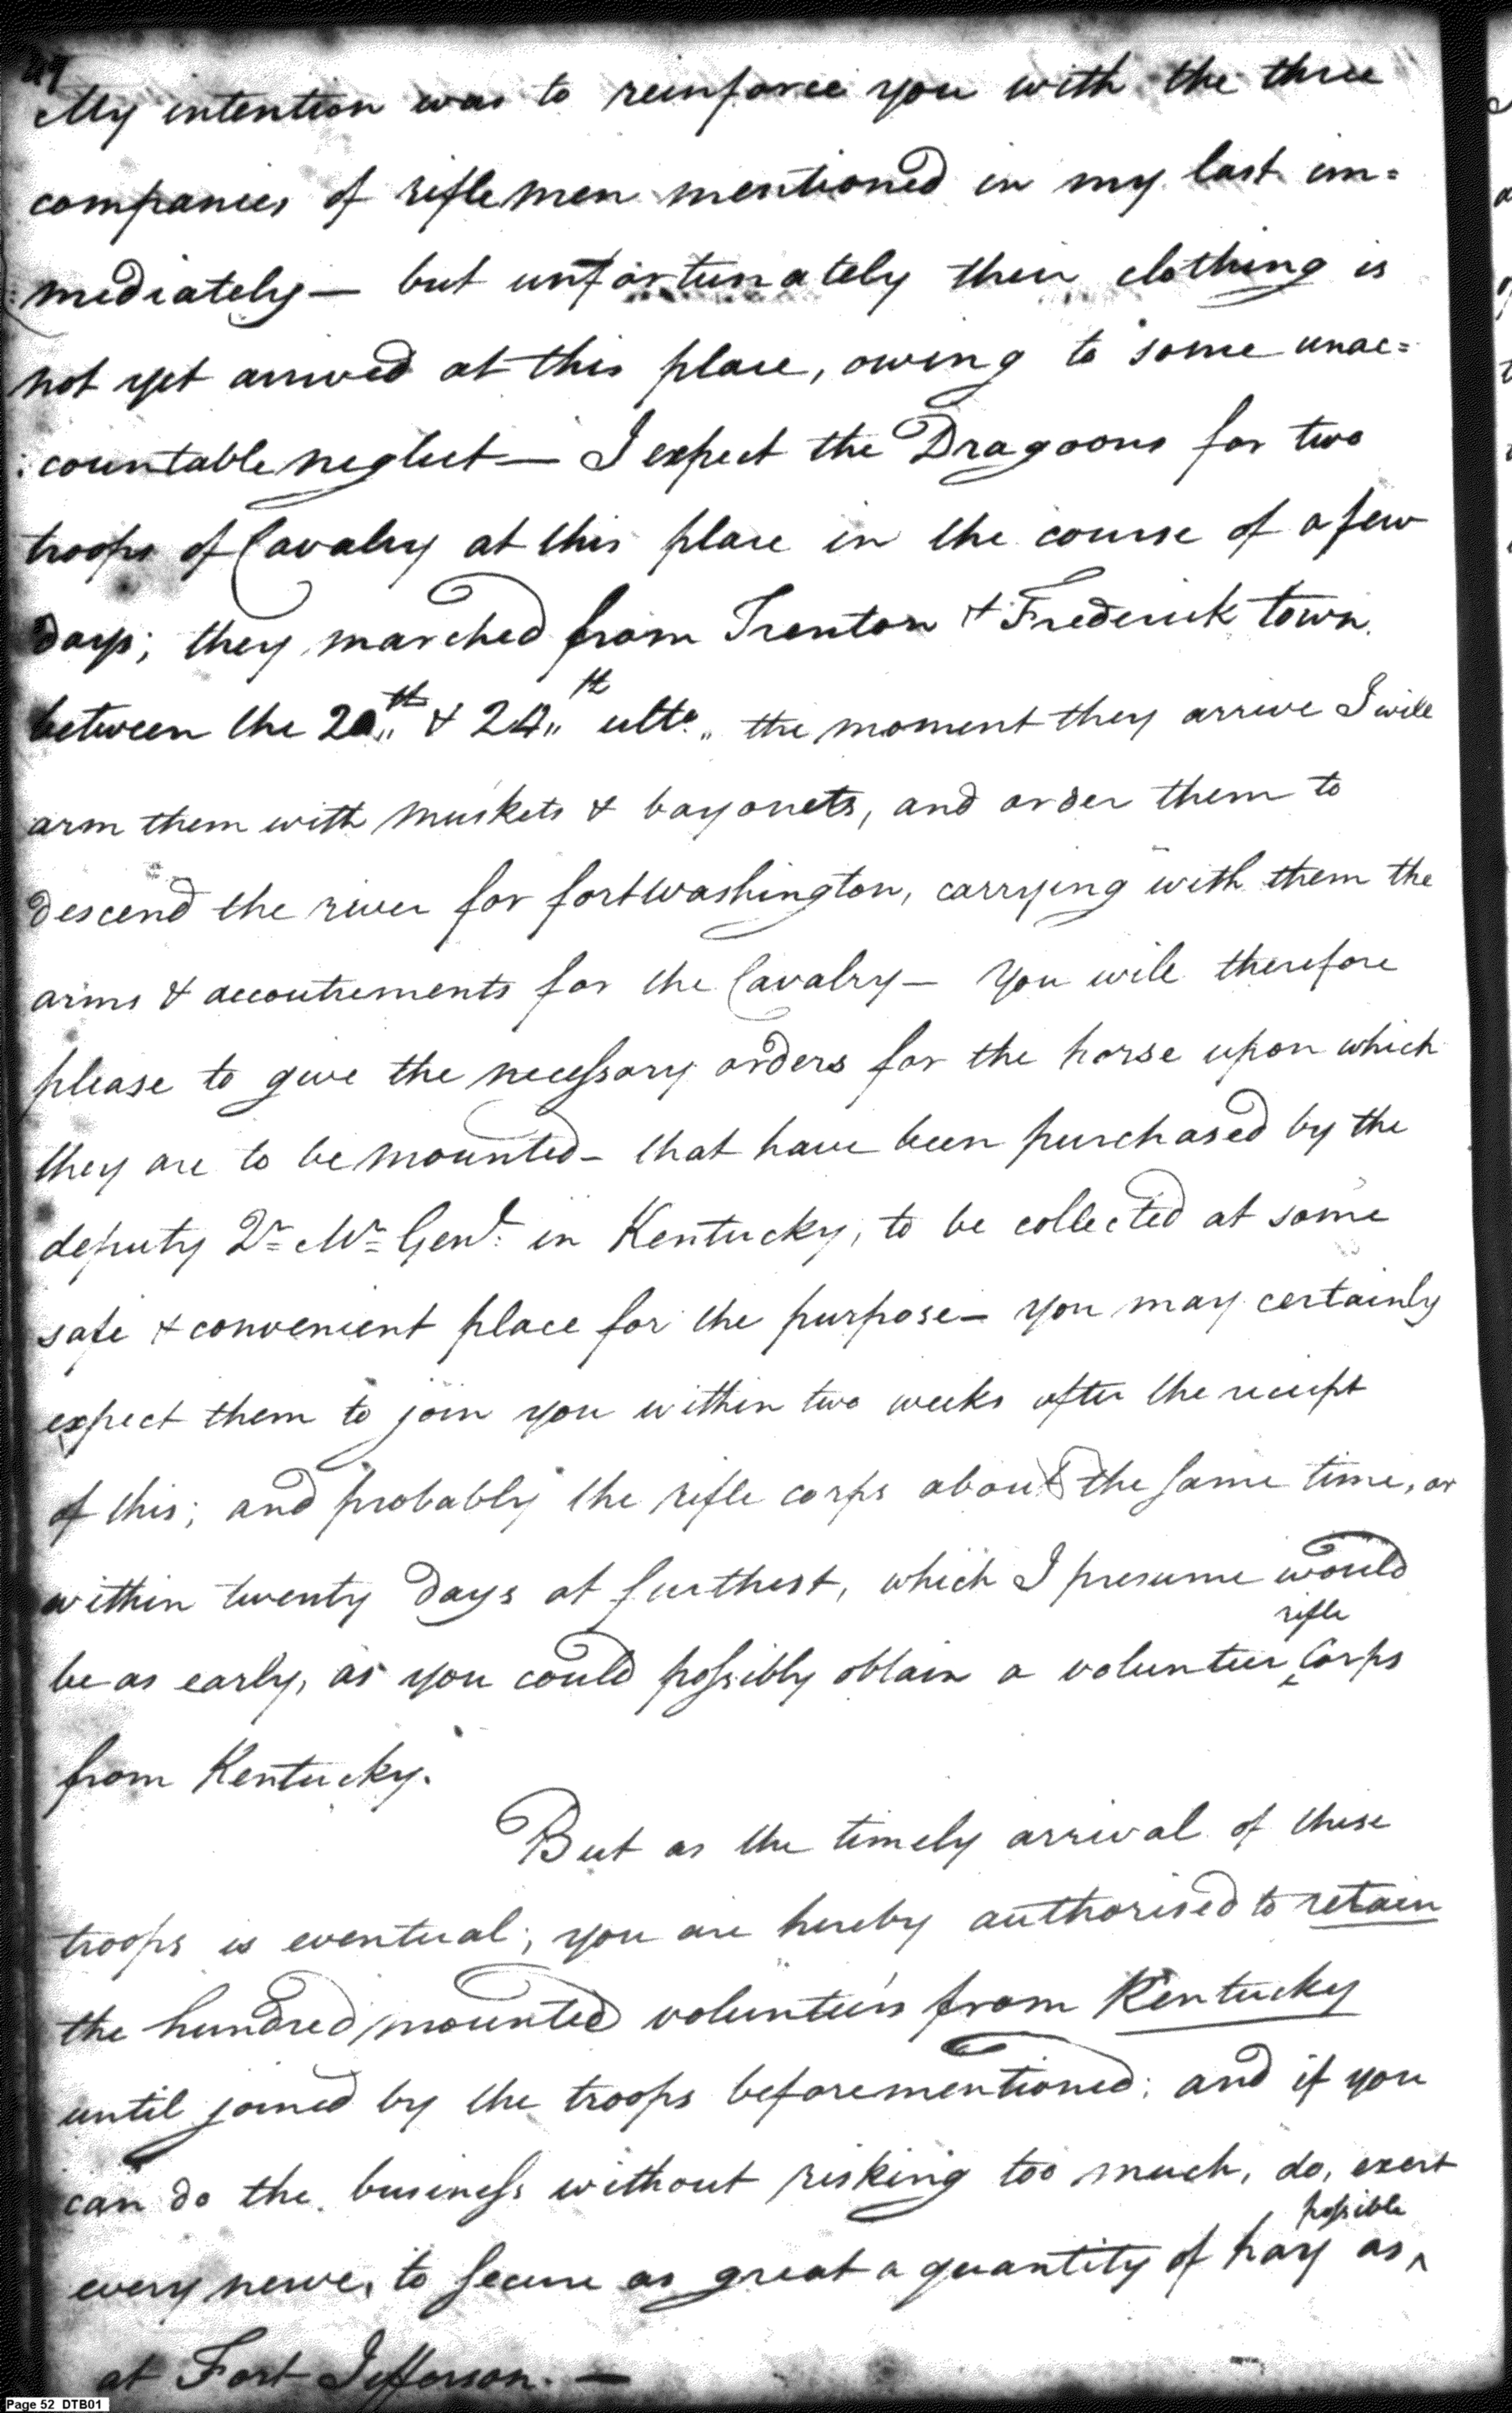 49
My intention was to reinforce you with the three
companies of riflemen mentioned in my last im=
mediately— but unfortunately their clothing is
not yet arrived at this place, owing to some unac=
:countable neglect— I expect the Dragoons for two
troops of Cavalry at this place in the course of a few
days; they marched from Trenton & Frederick town
between the 20th & 24th ulto. the moment they arrive I will
arm them with muskets & bayonets, and order them to
descend the river for fort Washington, carrying with them the
arms & accoutrements for the Cavalry— You will therefore
please to give the necessary orders for the horse upon which
they are to be mounted— that have been purchased by the
deputy Qr. Mr. Genl. in Kentucky, to be collected at some
safe & convenient place for the purpose— you may certainly
expect them to join you within two weeks after the receipt
of this; and probably the rifle corps about the same time, or
within twenty days at furthest, which I presume would
be as early, as you could possibly obtain a volunteer rifle Corps
from Kentucky.
But as the timely arrival of these
troops is eventual; you are hereby authorised to retain
the hundred mounted volunteers from Kentucky
until joined by the troops beforementioned; and if you
can do the business without risking too much, do, exert
every nerve, to secure as great a quantity of hay as possible
at Fort Jefferson. —
Page 52 DTB01